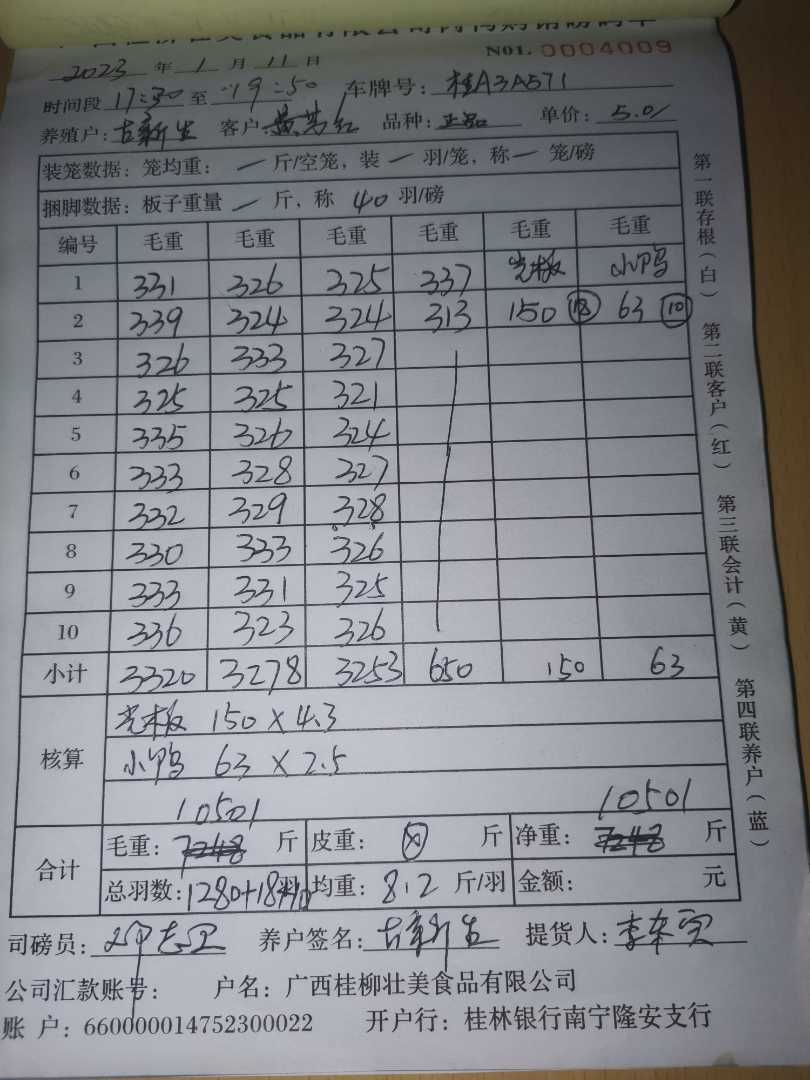 广西桂柳壮美食品有限公司肉鸭购销磅码单
2023年1月11日 NO1. 0004009
时间段17:30至19:50 车牌号:桂A3A571
养殖户:古新生 客户:黄 红 品种:正品 单价:5.0/
装笼数据:笼均重:一斤/空笼,装一羽/笼,称一笼/磅
捆脚数据:板子重量一斤,称40羽/磅
编号 毛重 毛重 毛重 毛重 毛重 毛重
1 331 326 325 337 光板 小鸭
2 339 324 324 313 150 18 63 10
3 326 333 327
4 325 325 321
5 335 326 324
6 333 328 327
7 332 329 328
8 330 333 326
9 333 331 325
10 336 323 326
小计 3320 3278 3253 650 150 63
核算 光板 150×4.3
小鸭 63×2.5
10501 10501
合计 毛重:7248斤 皮重: 斤 净重:7248斤
总羽数:1280+18羽+10 均重:8.2斤/羽 金额: 元
司磅员: 养户签名:古新生 提货人:李
公司汇款账号: 户名:广西桂柳壮美食品有限公司
账 户:660000014752300022 开户行:桂林银行南宁隆安支行
第一联存根(白) 第二联客户(红) 第三联会计(黄) 第四联养户(蓝)